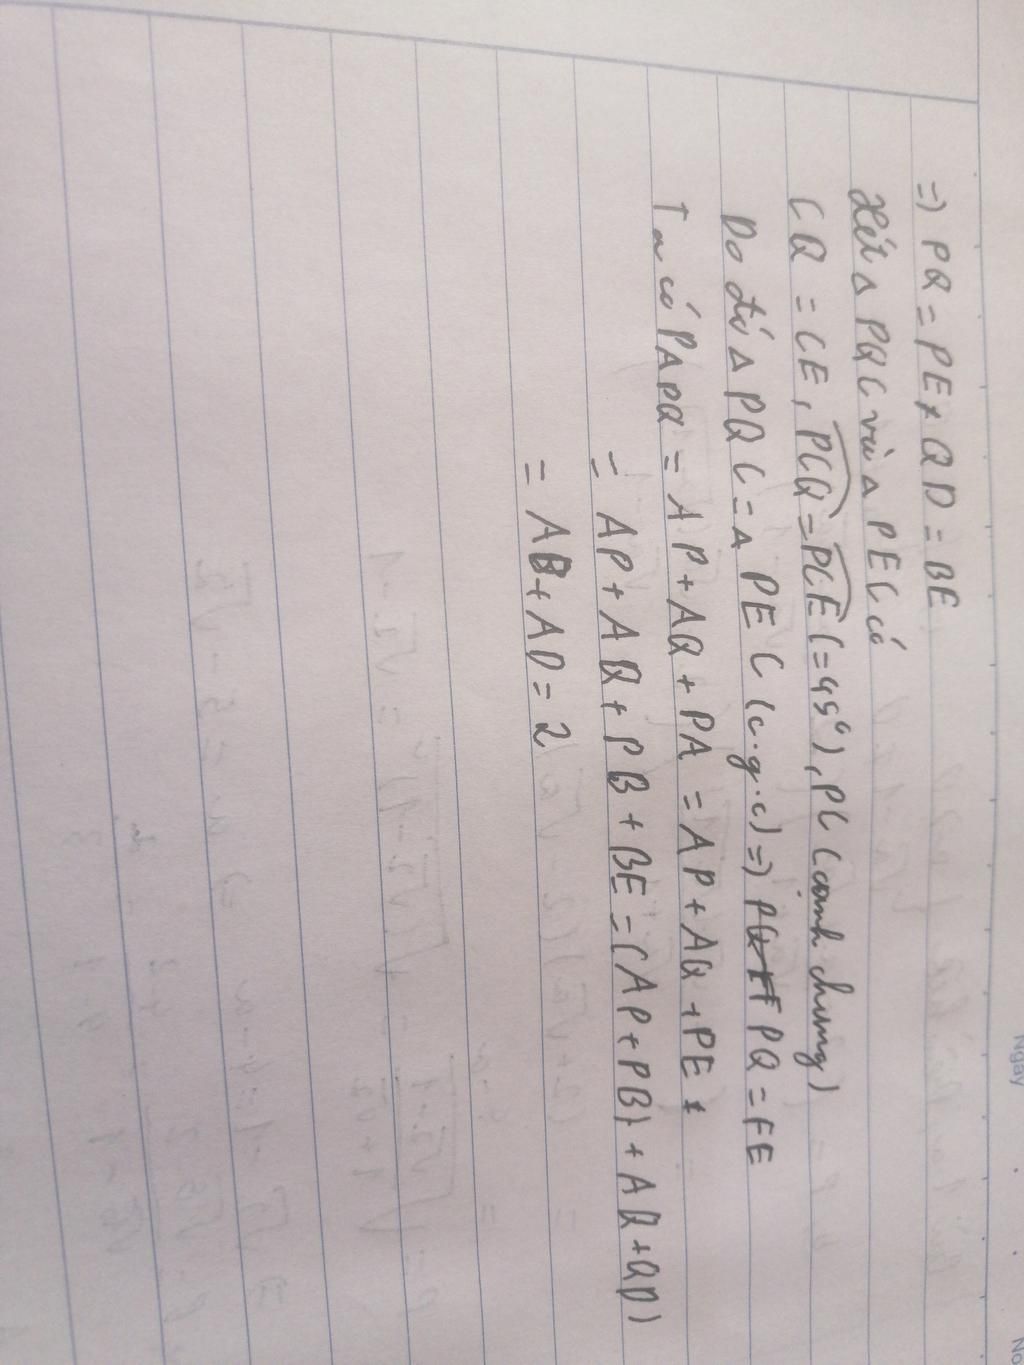 =) PQ = PE, QD = BE
Xét Δ PQC và Δ PEC có
CQ = CE, PCQ = PCE (=45°), PC (cạnh chung)
Do đó Δ PQC = Δ PEC (c.g.c) =) PQ = FE
Ta có PAPQ = AP + AQ + PA = AP + AQ + PE
= AP + AQ + PB + BE = (AP + PB) + AQ + QD)
= AB + AD = 2
Ngày
No